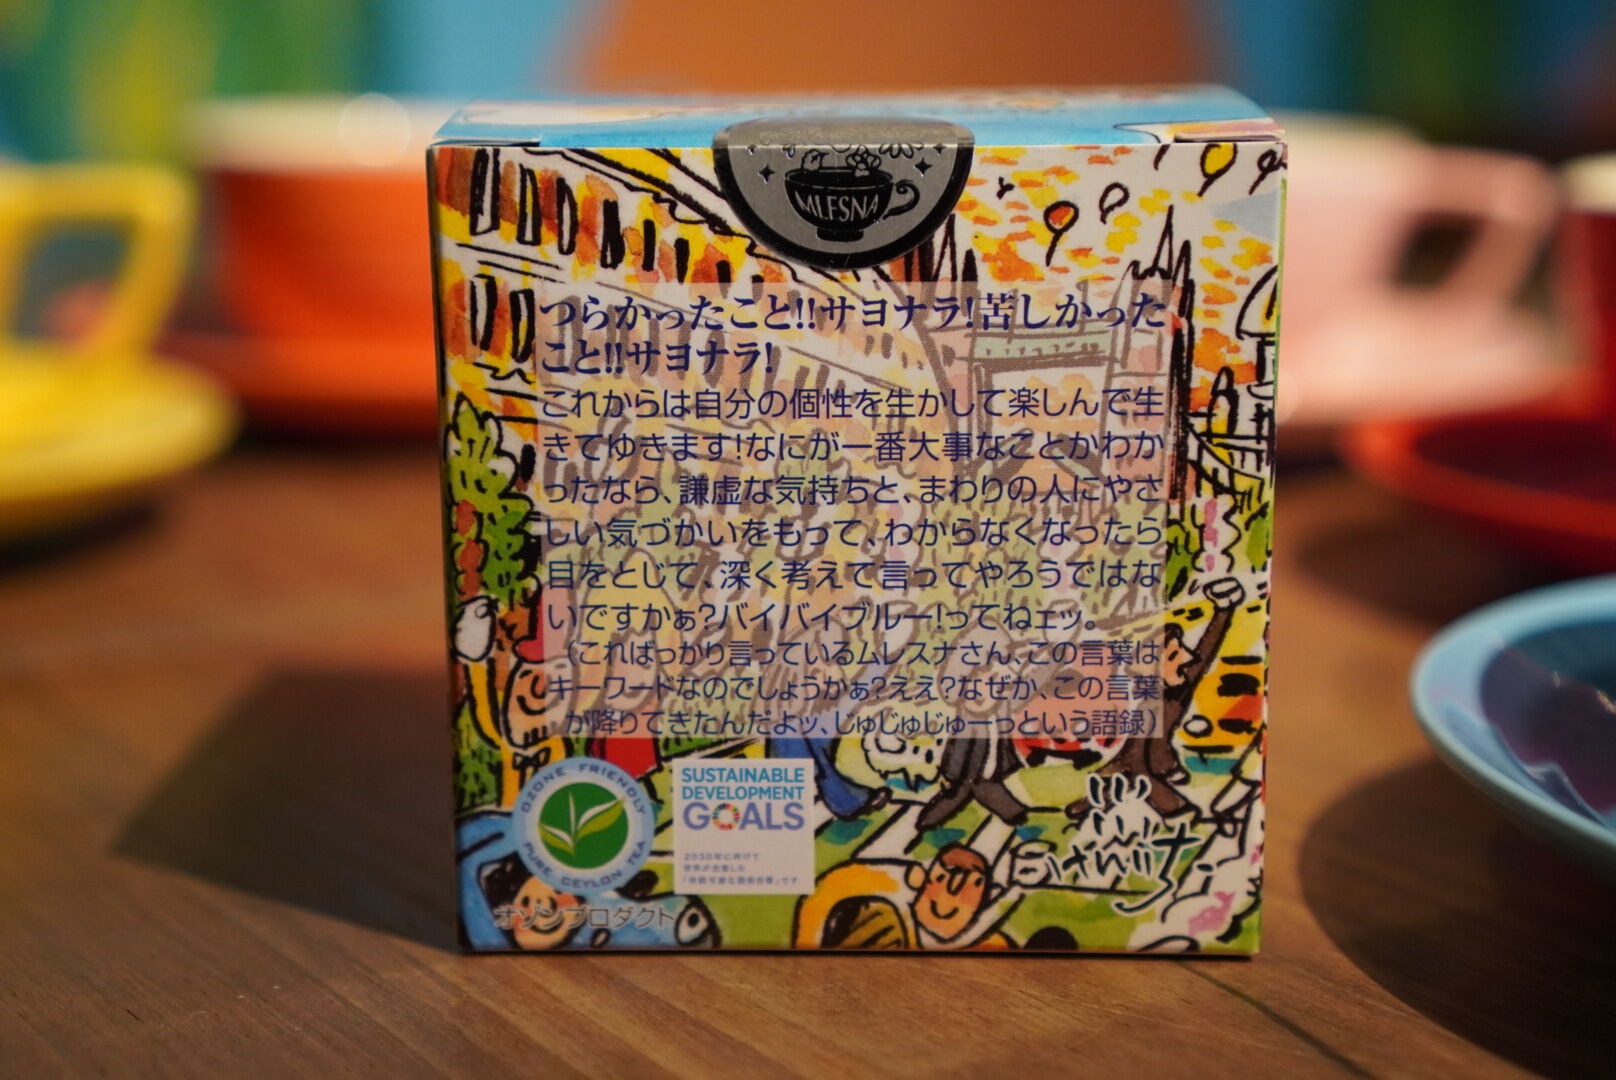 MLESNA
つらかったこと!!サヨナラ!苦しかった
こと!!サヨナラ!
これからは自分の個性を生かして楽しんで生
きてゆきます!なにが一番大事なことかわか
ったなら、謙虚な気持ちと、まわりの人にやさ
しい気づかいをもって、わからなくなったら
目をとじて、深く考えて言ってやろうではな
いですかぁ?バイバイブルー!ってねェッ。
(こればっかり言っているムレスナさん、この言葉は
キーワードなのでしょうかぁ?ええ?なぜか、この言葉
が降りてきたんだよッ、じゅじゅじゅーっという語録)
OZONE FRIENDLY
PURE CEYLON TEA
オゾンプロダクト
SUSTAINABLE
DEVELOPMENT
GOALS
2030年に向けて
世界が合意した
「持続可能な開発目標」です